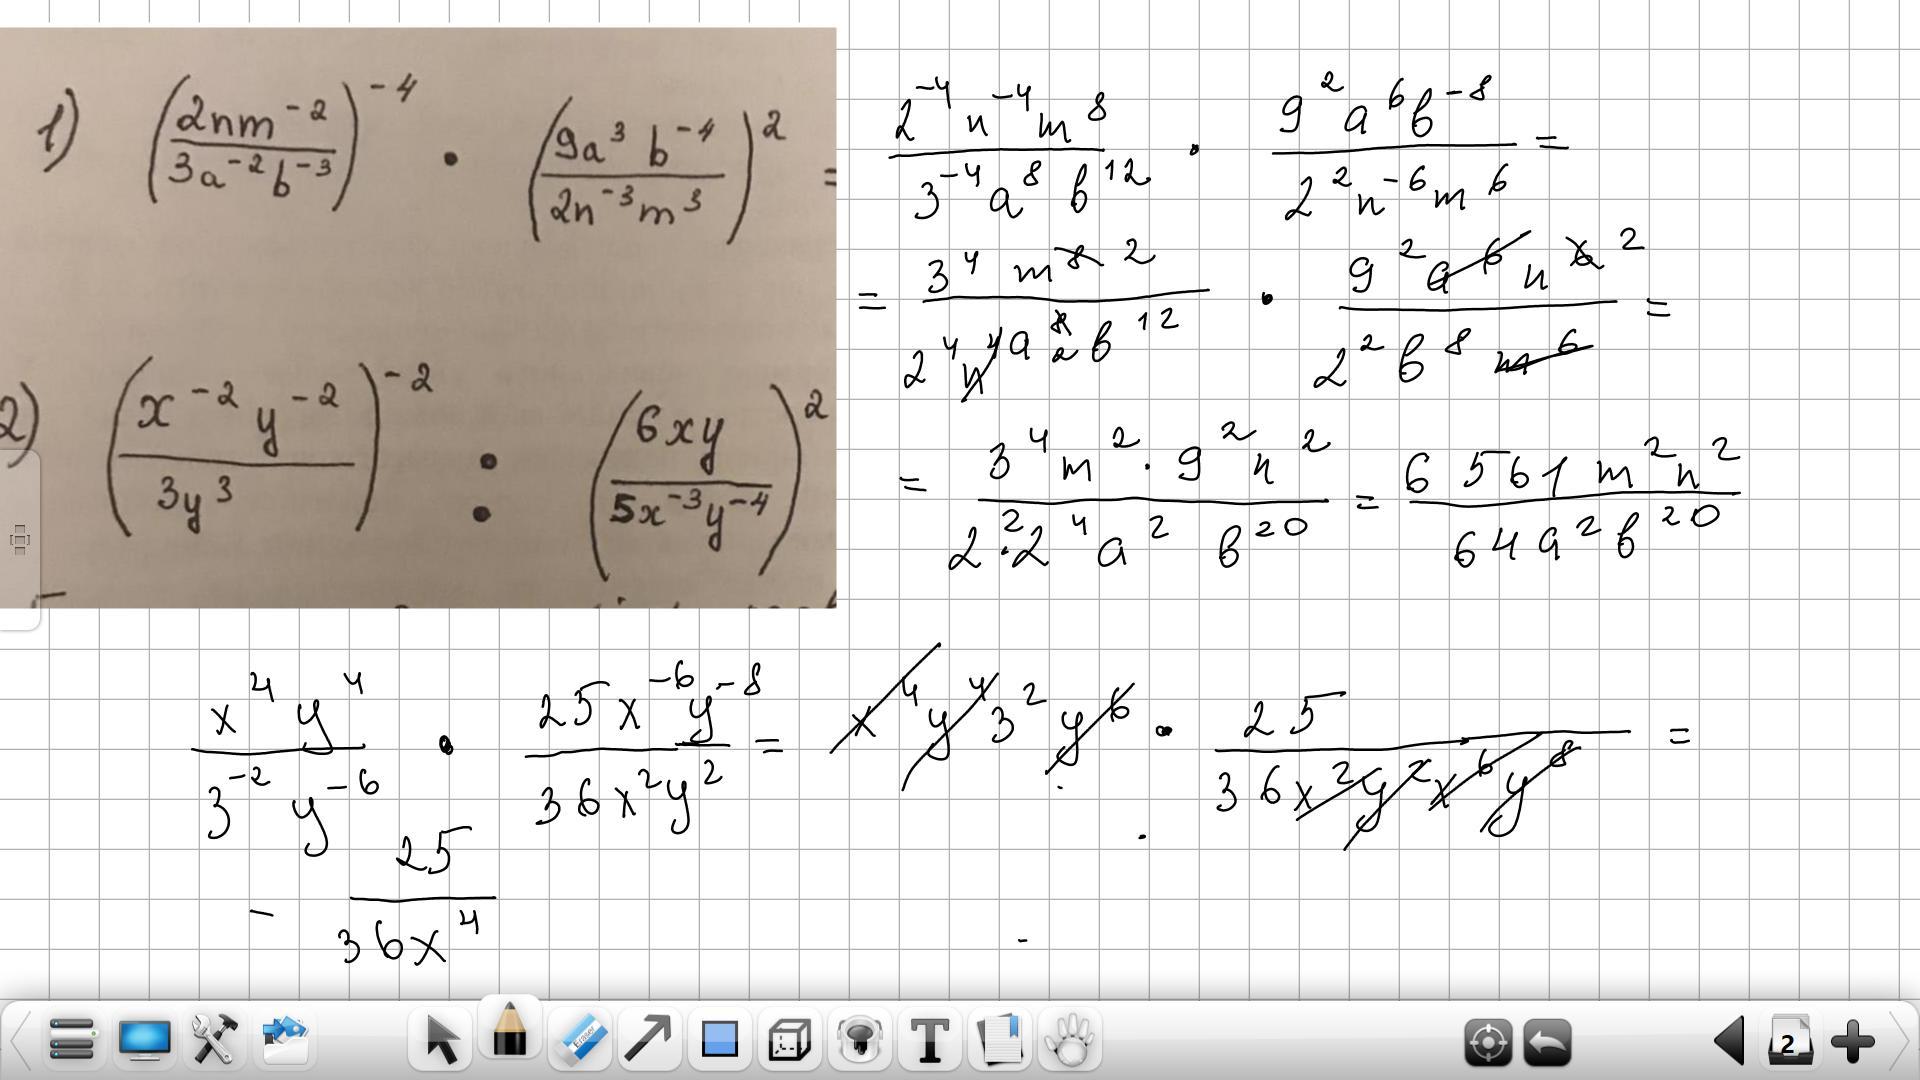 1) (2nm⁻² / 3a⁻²b⁻³)⁻⁴ · (9a³ b⁻⁴ / 2n⁻³m³)² =
2) (x⁻² y⁻² / 3y³)⁻² : (6xy / 5x⁻³y⁻⁴)²
2⁻⁴n⁻⁴m⁸ / 3⁻⁴a⁸b¹² · 9²a⁶b⁻⁸ / 2²n⁻⁶m⁶ =
= 3⁴ m⁸ ² / 2⁴n⁴a⁸ ₂ b¹² · 9²a⁶n⁶ ² / 2²b⁸m⁶ =
= 3⁴m² · 9²n² / 2² · 2⁴a² b²⁰ = 6561m²n² / 64a²b²⁰
x⁴y⁴ / 3⁻²y⁻⁶ · 25x⁻⁶y⁻⁸ / 36x²y² = x⁴y⁴3²y⁶ · 25 / 36x²y²x⁶y⁸ =
- 25 / 36x⁴
Eraser
T
2